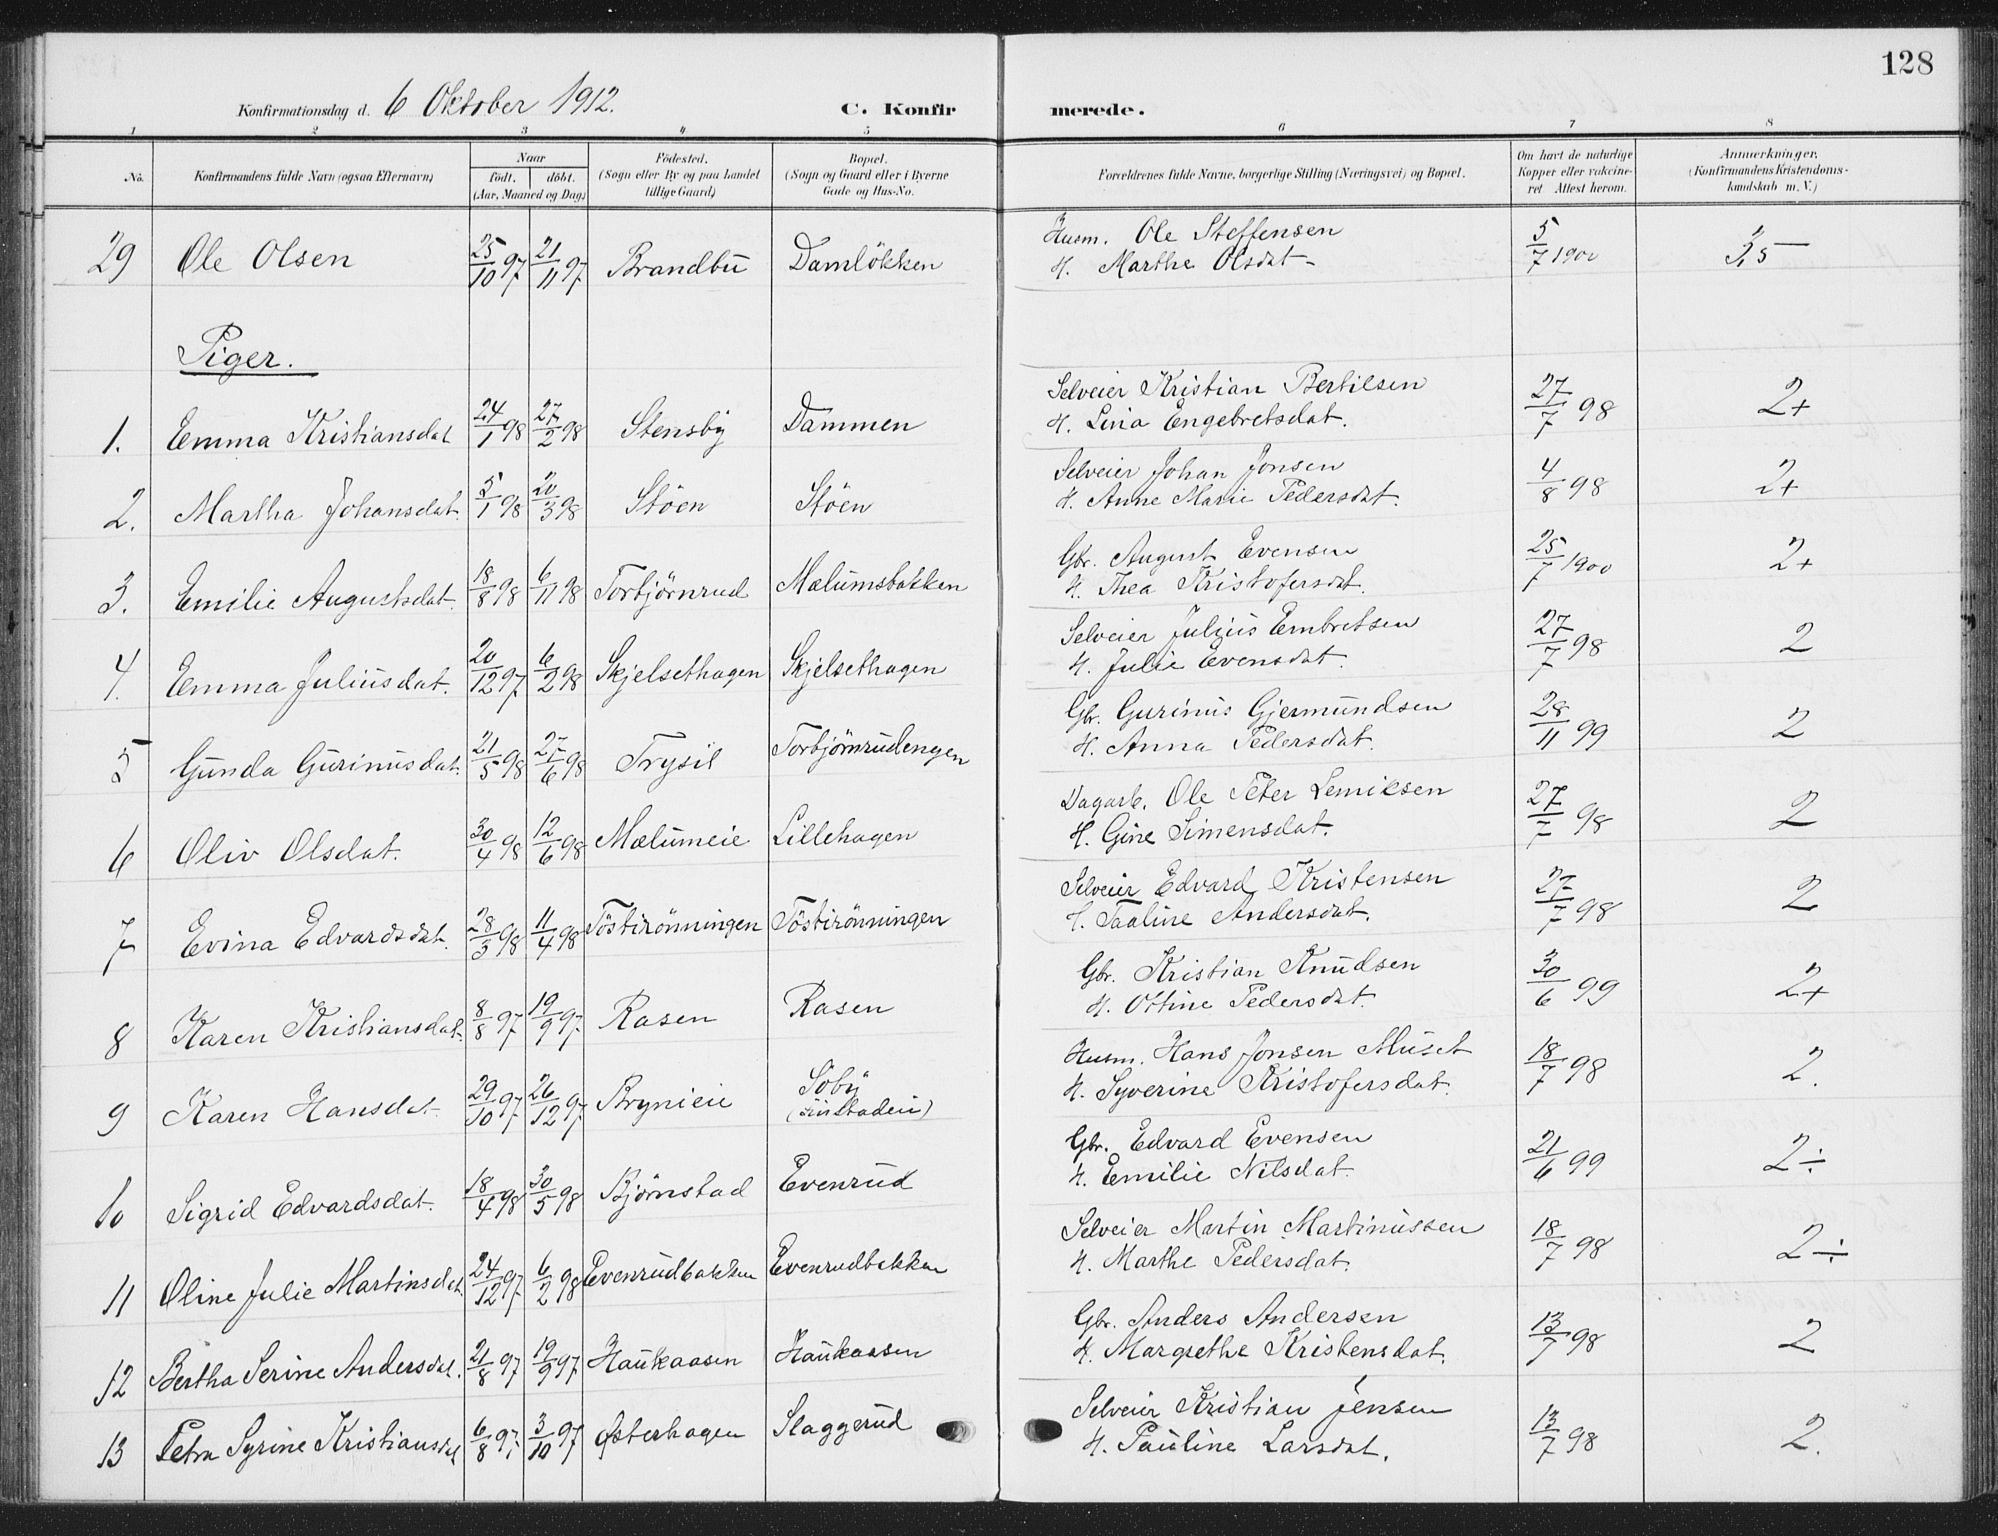 128
Konfirmationsdag d. 6 Oktober 1912. C. Konfirmerede.
1 2 3 4 5 6 7 8
No. Konfirmandens fulde Navn (ogsaa Efternavn) Naar født. døbt. (Aar, Maaned og Dag) Födested. (Sogn eller By og paa Landet tillige Gaard) Bopæl. (Sogn og Gaard eller i Byerne Gade og Hus-No. Forældrenes fulde Navne, borgerlige Stilling (Næringsvei) og Bopæl. Om havt de naturlige Kopper eller vaccineret Attest herom. Anmerkninger. (Konfirmandens Kristendomskundskab m. V.)
29 Ole Olsen 25/10 97 21/11 97 Brandbu Damløkken Husm. Ole Steffensen H. Marthe Olsdat 5/7 1900 3,5
Piger.
1. Emma Kristiansdat 24/1 98 27/2 98 Stensby Dammen Selveier Kristian Bertilsen H. Lina Engebretsdat. 27/7 98 2+
2. Martha Johansdat. 5/1 98 20/3 98 Støen Støen Selveier Johan Jonsen H. Anne Marie Pedersdat. 4/8 98 2+
3. Emilie Augustsdat. 18/8 98 6/11 98 Torbjørnrud Mælumsbakken Gbr. August Evensen H. Thea Kristofersdat. 25/7 1900 2+
4. Emma Juliusdat. 20/12 97 6/2 98 Skjelsethagen Skjelsethagen Selveier Julius Embretsen H. Julie Evensdat. 27/7 98 2
5 Gunda Gurinusdat. 21/5 98 27/6 98 Trysil Torbjørnrudengen Gbr. Gurinus Gjermundsen H. Anna Pedersdat. 28/11 99 2
6 Oliv Olsdat. 30/4 98 12/6 98 Mælumeie Lillehagen Dagarb. Ole Peter Lemiksen H. Gine Simensdat. 27/7 98 2
7 Evina Edvardsdat. 28/3 98 11/4 98 Tøstirønningen Tøstirønningen Selveier Edvard Kristensen H. Paaline Andersdat. 27/7 98 2
8 Karen Kristiansdat. 8/8 97 19/9 97 Rasen Rasen Gbr. Kristian Knudsen H. Ottine Pedersdat. 30/6 99 2+
9 Karen Hansdat. 29/10 97 26/12 97 Brynieie Søby Husm. Hans Jonsen Muset H. Syverine Kristofersdat. 18/7 98 2.
10 Sigrid Edvardsdat. 18/4 98 30/5 98 Bjørnstad Evenrud Gbr. Edvard Evensen H. Emilie Nilsdat. 21/6 99 2÷
11 Oline Julie Martinsdat. 24/12 97 6/2 98 Evenrudbakken Evenrudbakken Selveier Martin Martinussen H. Marthe Pedersdat. 18/7 98 2÷
12 Bertha Serine Andersdat. 21/8 97 19/9 97 Haukaasen Haukaasen Gbr. Anders Andersen H. Margrethe Kristensdat. 13/7 98 2
13 Petra Syrine Kristiansdat 6/8 97 3/10 97 Østerhagen Slaggerud Selveier Kristian Jensen H. Pauline Larsdat. 13/7 98 2.